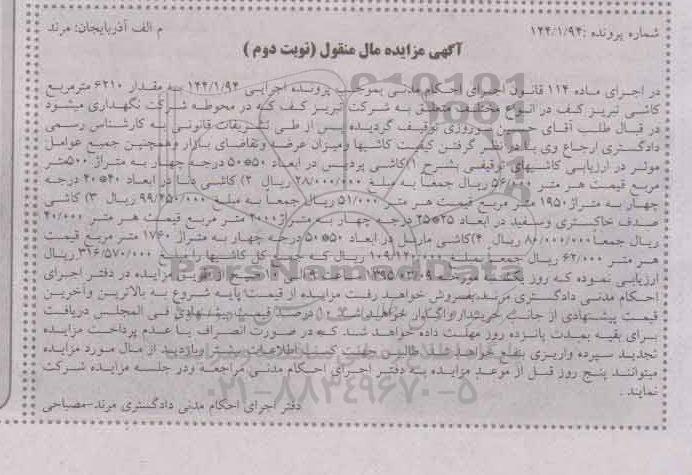 شماره پرونده :۱۲۴/۱/۹۴
م الف آذربایجان: مرند
آگهی مزایده مال منقول (نوبت دوم )
در اجرای ماده ۱۱۴ قانون اجرای احکام مدنی بموجب پرونده اجرایی ۱۲۴/۱/۹۴ به مقدار ۶۲۱۰ مترمربع
کاشی تبریز کف در انواع مختلف متعلق به شرکت تبریز کف که در محوطه شرکت نگهداری میشود
در قبال طلب آقای حسین نوروزی توقیف گردیده پس از طی تشریفات قانونی به کارشناس رسمی
دادگستری ارجاع وی با در نظر گرفتن کیفیت کاشیها ومیزان عرضه وتقاضای بازار وهمچنین جمیع عوامل
موثر در ارزیابی کاشیهای توقیفی بشرح ۱)کاشی پردیس در ابعاد ۵۰*۵۰ درجه چهار به متراژ ۵۰۰متر
مربع قیمت هر متر ۵۶/۰۰۰ ریال جمعا به مبلغ ۲۸/۰۰۰/۰۰۰ ریال ۲) کاشی دنا در ابعاد ۴۰*۴۰ درجه
چهار به متراژ ۱۹۵۰ متر مربع قیمت هر متر ۵۱/۰۰۰ ریال جمعا به مبلغ ۹۹/۴۵۰/۰۰۰ ریال ۳) کاشی
صدف خاکستری وسفید در ابعاد ۲۵*۲۵ درجه چهار به متراژ ۲۰۰۰ متر مربع قیمت هر متر ۴۰/۰۰۰
ریال جمعا ۸۰/۰۰۰/۰۰۰ ریال ۴)کاشی ماربل در ابعاد ۵۰*۵۰ درجه چهار به متراژ ۱۷۶۰ متر مربع قیمت
هر متر ۶۲/۰۰۰ ریال جمعا بمبلغ ۱۰۹/۱۲۰/۰۰۰ ریال که جمع کل کاشیها رابمبلغ ۳۱۶/۵۷۰/۰۰۰ ریال
ارزیابی نموده که روز یکشنبه مورخه ۱۳۹۵/۰۳/۰۹ ساعت ۹ الی ۱۰ صبح از طریق مزایده در دفتر اجرای
احکام مدنی دادگستری مرند بفروش خواهد رفت مزایده از قیمت پایه شروع به بالاترین وآخرین
قیمت پیشنهادی از جانب خریدار واگذار خواهد شد ۱۰ درصد قیمت پیشنهادی فی المجلس دریافت
برای بقیه بمدت پانزده روز مهلت داده خواهد شد که در صورت انصراف یا عدم پرداخت مزایده
تجدید سپرده واریزی بنفع خواهد شد طالبین جهت کسب اطلاعات بیشتر وبازدید از مال مورد مزایده
میتوانند پنج روز قبل از موعد مزایده به دفتر اجرای احکام مدنی مراجعه ودر جلسه مزایده شرکت
نمایند .
دفتر اجرای احکام مدنی دادگستری مرند-مصباحی
ParsNamadData
۰۲۱-۸۸۳۴۹۶۷۰-۵